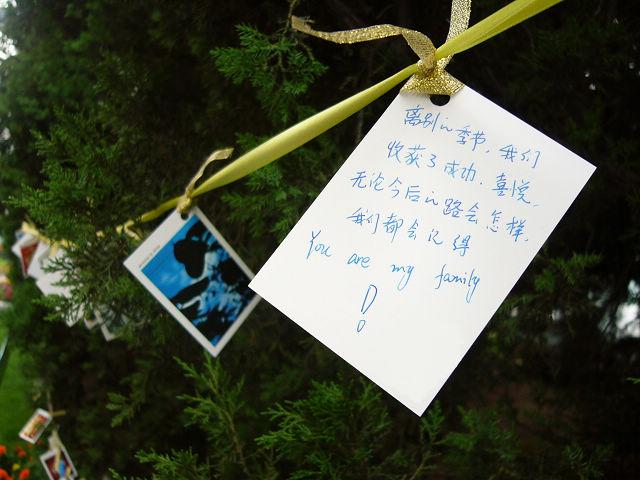 离别的季节，我们
收获了成功、喜悦，
无论今后的路会怎样，
我们都会记得
You are my family
!